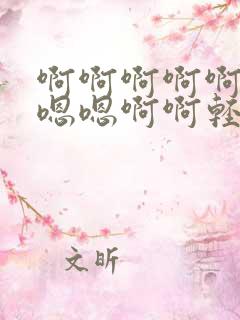 啊啊啊啊啊
嗯嗯啊啊轻
文昕